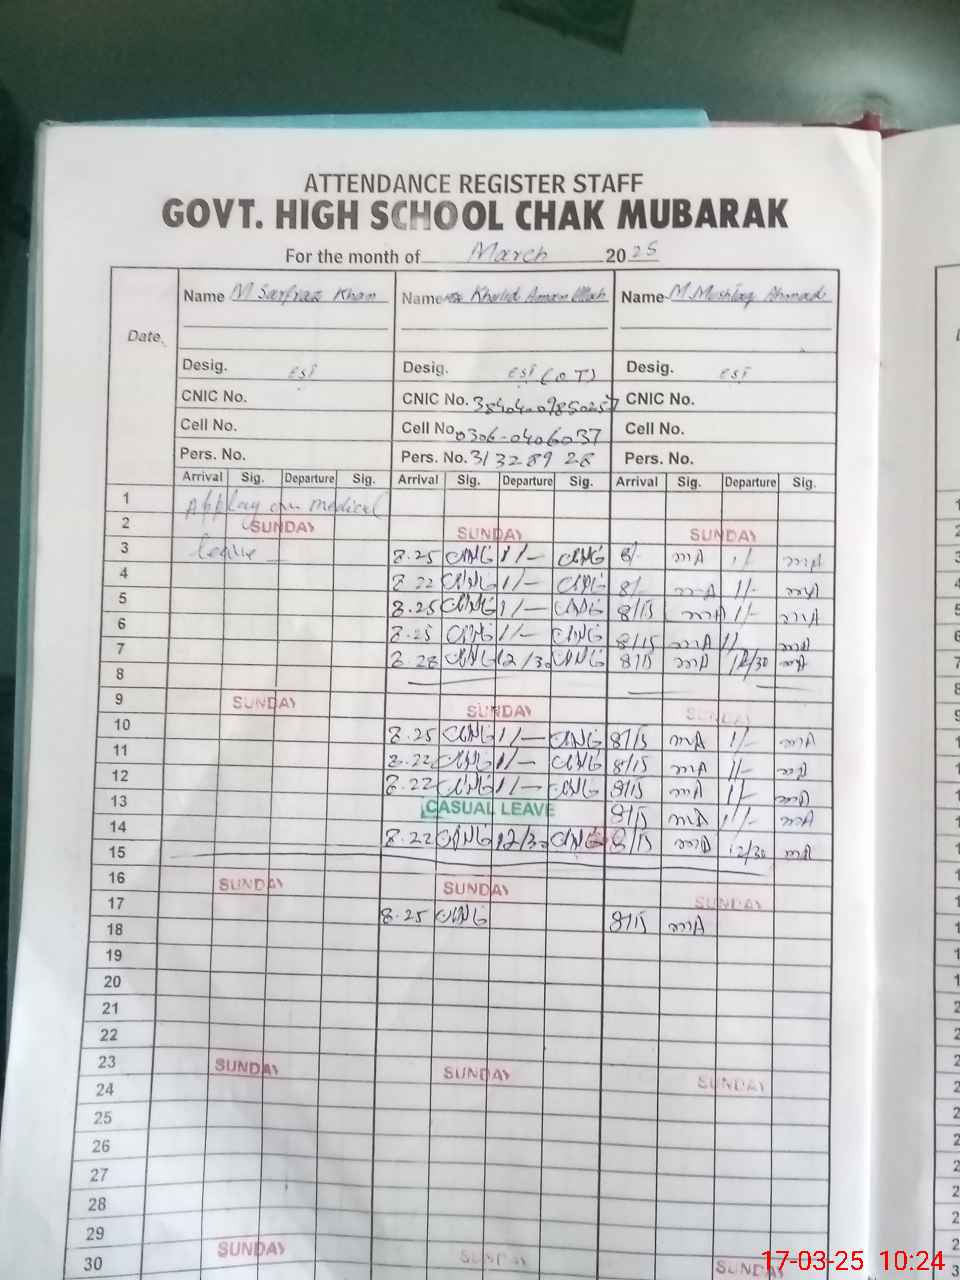 ATTENDANCE REGISTER STAFF
GOVT. HIGH SCHOOL CHAK MUBARAK
For the month of March 2025
Date.
Name M Sarfraz Khan Name Khalid Aman Ullah Name M. Mushtaq Ahmad
Desig. EST Desig. EST (OT) Desig. EST
CNIC No. CNIC No. CNIC No.
Cell No. Cell No. 0306-0406037 Cell No.
Pers. No. Pers. No. 31328928 Pers. No.
Arrival Sig. Departure Sig. Arrival Sig. Departure Sig. Arrival Sig. Departure Sig.
1 Applay on medical
2 SUNDAY SUNDAY SUNDAY
3 leave 8.25 1/- 8/- mA 1/- mA
4 8.22 1/- 8/- mA 1/- mA
5 8.25 1/- 8/15 mA 1/- mA
6 8.25 1/- 8/15 mA 1/- mA
7 8.28 12/30 8/15 mA 12/30 mA
8
9 SUNDAY SUNDAY SUNDAY
10 8.25 1/- 8/15 mA 1/- mA
11 8.22 1/- 8/15 mA 1/- mA
12 8.22 1/- 8/15 mA 1/- mA
13 CASUAL LEAVE 8/15 mA 1/- mA
14 8.22 12/30 8/15 mA 12/30 mA
15
16 SUNDAY SUNDAY SUNDAY
17 8.25 8/15 mA
18
19
20
21
22
23 SUNDAY SUNDAY SUNDAY
24
25
26
27
28
29
30 SUNDAY SUNDAY SUNDAY
17-03-25 10:24